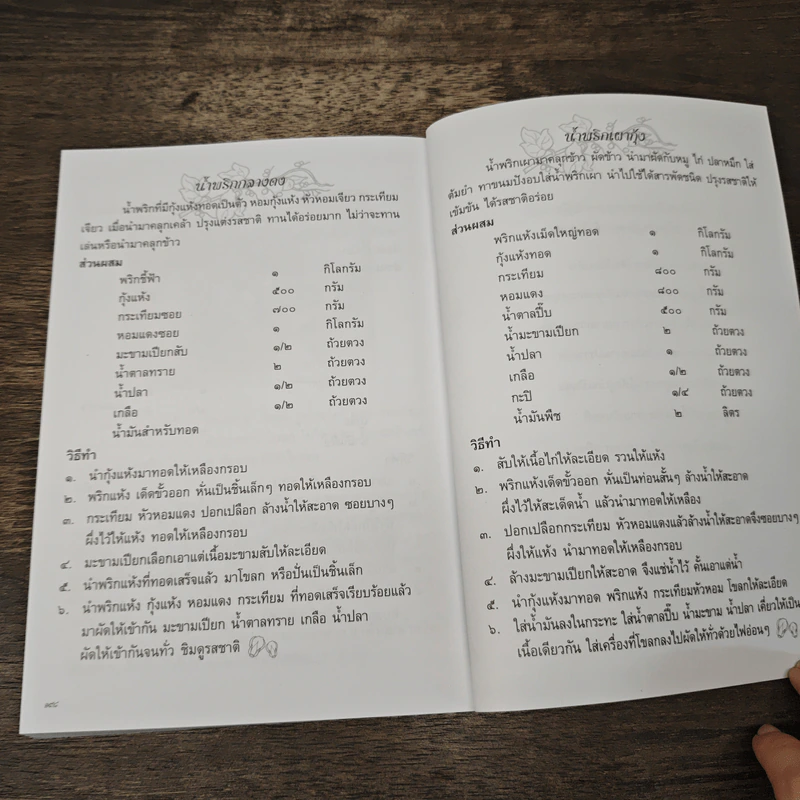 น้ำพริกกลางดง
น้ำพริกที่มีกุ้งแห้งทอดเป็นตัว หอมกุ้งแห้ง หัวหอมเจียว กระเทียม
เจียว เมื่อนำมาคลุกเคล้า ปรุงแต่งรสชาติ ทานได้อร่อยมาก ไม่ว่าจะทาน
เล่นหรือนำมาคลุกข้าว
ส่วนผสม
พริกชี้ฟ้า ๑ กิโลกรัม
กุ้งแห้ง ๕๐๐ กรัม
กระเทียมซอย ๗๐๐ กรัม
หอมแดงซอย ๑ กิโลกรัม
มะขามเปียกสับ ๑/๒ ถ้วยตวง
น้ำตาลทราย ๒ ถ้วยตวง
น้ำปลา ๑/๒ ถ้วยตวง
เกลือ ๑/๒ ถ้วยตวง
น้ำมันสำหรับทอด
วิธีทำ
๑. นำกุ้งแห้งมาทอดให้เหลืองกรอบ
๒. พริกแห้ง เด็ดขั้วออก หั่นเป็นชิ้นเล็กๆ ทอดให้เหลืองกรอบ
๓. กระเทียม หัวหอมแดง ปอกเปลือก ล้างน้ำให้สะอาด ซอยบางๆ
ผึ่งไว้ให้แห้ง ทอดให้เหลืองกรอบ
๔. มะขามเปียกเลือกเอาแต่เนื้อมะขามสับให้ละเอียด
๕. นำพริกแห้งที่ทอดเสร็จแล้ว มาโขลก หรือปั่นเป็นชิ้นเล็ก
๖. นำพริกแห้ง กุ้งแห้ง หอมแดง กระเทียม ที่ทอดเสร็จเรียบร้อยแล้ว
มาผัดให้เข้ากัน มะขามเปียก น้ำตาลทราย เกลือ น้ำปลา
ผัดให้เข้ากันจนทั่ว ชิมดูรสชาติ
น้ำพริกเผากุ้ง
น้ำพริกเผามาคลุกข้าว ผัดข้าว นำมาผัดกับหมู ไก่ ปลาหมึก ใส่
ต้มยำ ทาขนมปังอบใส่น้ำพริกเผา นำไปใช้ได้สารพัดชนิด ปรุงรสชาติให้
เข้มข้น ได้รสชาติอร่อย
ส่วนผสม
พริกแห้งเม็ดใหญ่ทอด ๑ กิโลกรัม
กุ้งแห้งทอด ๑ กิโลกรัม
กระเทียม ๘๐๐ กรัม
หอมแดง ๘๐๐ กรัม
น้ำตาลปี๊บ ๕๐๐ กรัม
น้ำมะขามเปียก ๒ ถ้วยตวง
น้ำปลา ๑ ถ้วยตวง
เกลือ ๑/๒ ถ้วยตวง
กะปิ ๑/๔ ถ้วยตวง
น้ำมันพืช ๒ ลิตร
วิธีทำ
๑. สับให้เนื้อไก่ให้ละเอียด รวนให้แห้ง
๒. พริกแห้งเด็ดขั้วออก หั่นเป็นท่อนสั้นๆ ล้างน้ำให้สะอาด
ผึ่งไว้ให้สะเด็ดน้ำ แล้วนำมาทอดให้เหลือง
๓. ปอกเปลือกกระเทียม หัวหอมแดงแล้วล้างน้ำให้สะอาดจึงซอยบางๆ
ผึ่งให้แห้ง นำมาทอดให้เหลืองกรอบ
๔. ล้างมะขามเปียกให้สะอาด จึงแช่น้ำไว้ คั้นเอาแต่น้ำ
๕. นำกุ้งแห้งมาทอด พริกแห้ง กระเทียมหัวหอม โขลกให้ละเอียด
๖. ใส่น้ำมันลงในกระทะ ใส่น้ำตาลปี๊บ น้ำมะขาม น้ำปลา เคี่ยวให้เป็น
เนื้อเดียวกัน ใส่เครื่องที่โขลกลงไปผัดให้ทั่วด้วยไฟอ่อนๆ